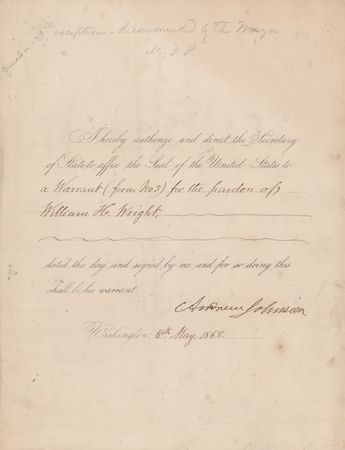 13th exception - Recommended by the Mayor
I hereby authorize and direct the Secretary
of State to affix the Seal of the United States to
a Warrant (form No 3) for the pardon of
William H. Wright,
dated this day, and signed by me and for so doing this
shall be his warrant.
Andrew Johnson
Washington 6th May, 1868.